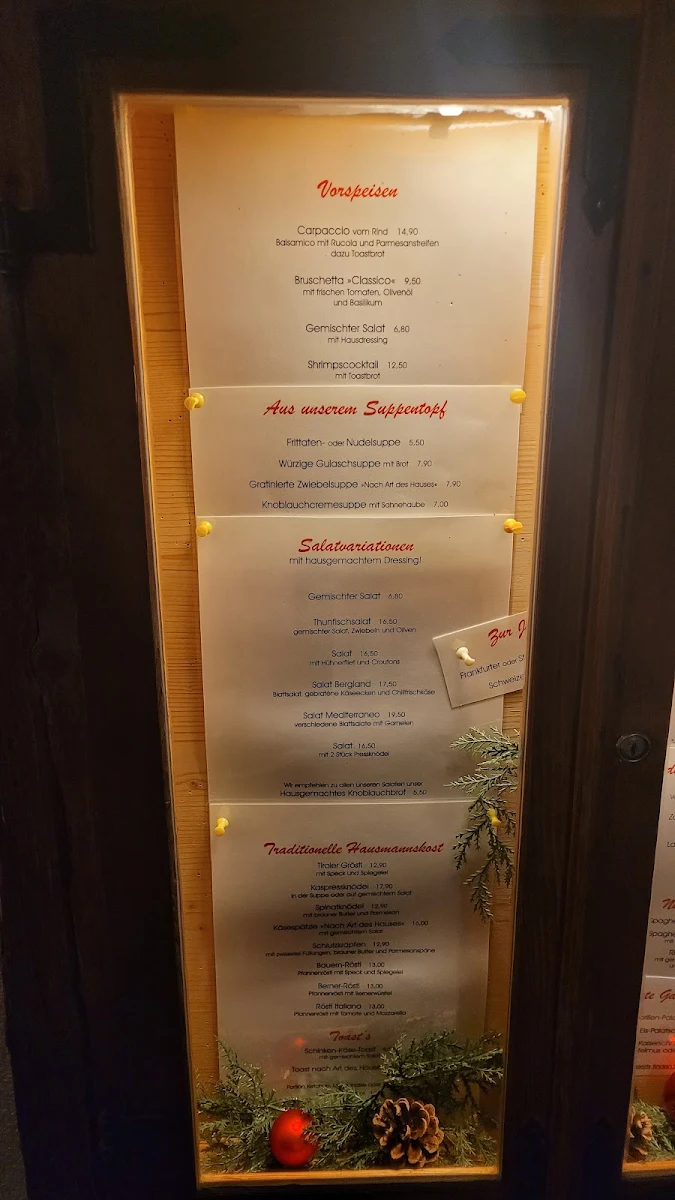 Vorspeisen
Carpaccio vom Rind 14,90
Balsamico mit Rucola und Parmesanstreifen
dazu Toastbrot
Bruschetta »Classico« 9,50
mit frischen Tomaten, Olivenöl
und Basilikum
Gemischter Salat 6,80
mit Hausdressing
Shrimpscocktail 12,50
mit Toastbrot
Aus unserem Suppentopf
Frittaten- oder Nudelsuppe 5,50
Würzige Gulaschsuppe mit Brot 7,90
Gratinierte Zwiebelsuppe »Nach Art des Hauses« 7,90
Knoblauchcremesuppe mit Sahnehaube 7,00
Salatvariationen
mit hausgemachtem Dressing!
Gemischter Salat 6,80
Thunfischsalat 16,50
gemischter Salat, Zwiebeln und Oliven
Salat 16,50
mit Hühnerfilet und Croutons
Salat Bergland 17,50
Blattsalat, gebratene Käseecken und Chilifrischkäse
Salat Mediterraneo 19,50
verschiedene Blattsalate mit Garnelen
Salat 16,50
mit 2 Stück Pressknödel
Wir empfehlen zu allen unseren Salaten unser
Hausgemachtes Knoblauchbrot 5,50
Zur J
Frankfurter oder
Schweizer
Traditionelle Hausmannskost
Tiroler Gröstl 12,90
mit Speck und Spiegelei
Kaspressknödel
in der Suppe oder auf gemischtem Salat
Spinatknödel 12,90
mit brauner Butter und Parmesan
Käsespätzle »Nach Art des Hauses«
mit gemischtem Salat
Schlutzkrapfen 12,90
brauner Butter und Parmesanspäne
Bauern-Rösti 13,00
Pfannenrösti mit Speck und Spiegelei
Berner-Rösti 13,00
Pfannenrösti mit Bernerwürstel
Rösti Italiano
Pfannenrösti mit Tomate und Mozzarella
Toast's
Schinken-Käse-Toast
mit gemischtem Salat
Toast nach Art des